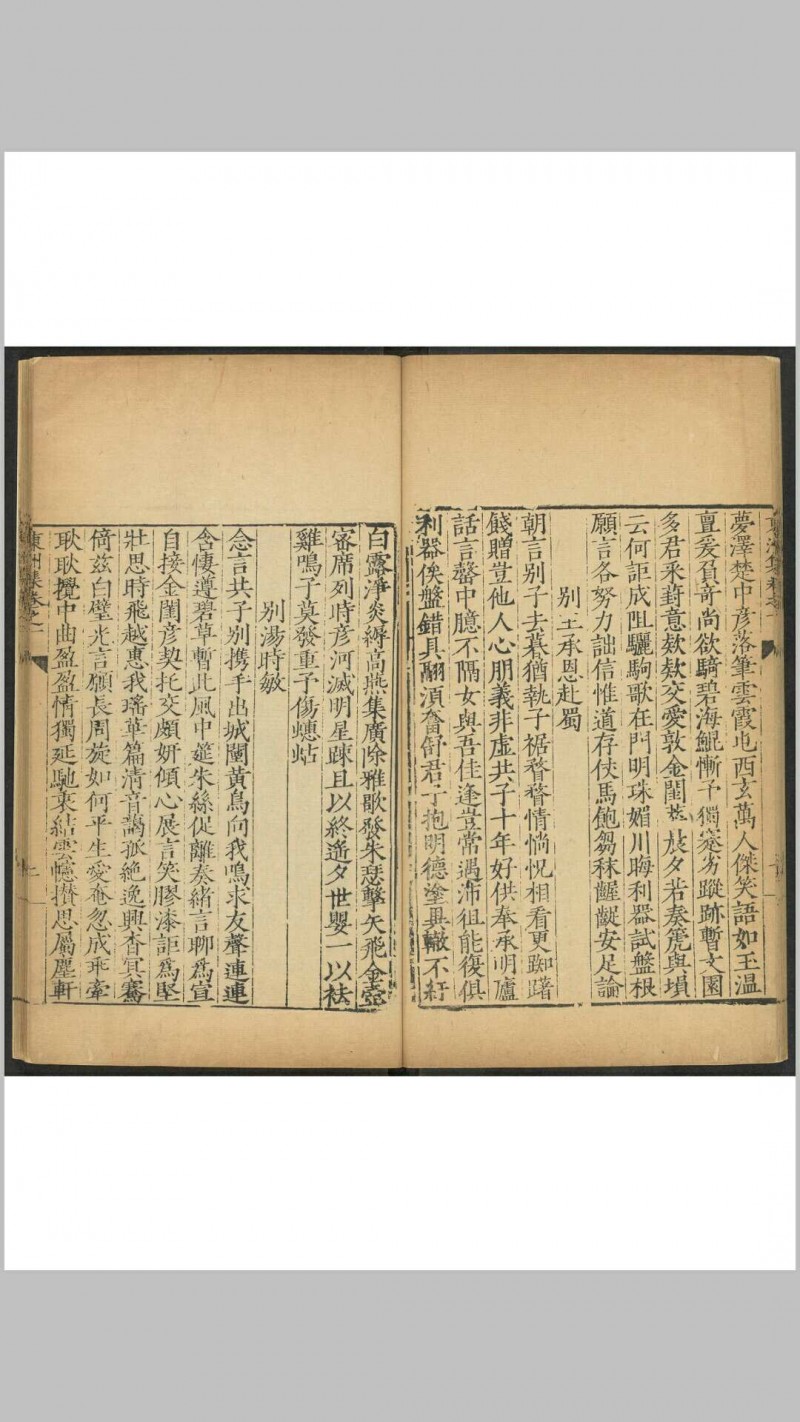 夢澤楚中彥落筆雲霞屯西玄萬人傑笑語如玉溫
亶爰負奇尚欲騎碧海鯤慚予獨蹇劣蹤跡暫文園
多君采葑意欵欵交愛敦金閨暮晨夕若奏箎與塤
云何詎成阻驪駒歌在門明珠媚川晦利器試盤根
願言各努力詘信惟道存俠馬飽芻秣齷齪安足論
別王承恩赴蜀
朝言別子去暮猶執子裾瞀瞀情惝怳相看更踟躇
餞贈豈他人心朋義非虛共子十年好供奉承明廬
話言罄中臆不隔女與吾佳逢豈常遇沛徂能復俱
利器俟盤錯具翮須奮舒君子抱明德塗畢轍不紆
白露淨炎縟高燕集廣除雅歌發朱瑟擊矢飛金壺
密席列時彥河滅明星疎且以終遙夕世嬰一以袪
雞鳴子莫發重予傷蟪蛄
別湯時敏
念言共子別携手出城闉黃鳥向我鳴求友聲連連
含悽遵碧草暫此風中筵朱絲促離奏緒言聊爲宣
自接金閨彥契托交頗妍傾心展言笑膠漆詎爲堅
壯思時飛越惠我瑤華篇清音謁孤絶逸興杳冥騫
倚兹白璧光言願長周旋如何平生愛奄忽成乖牽
耿耿攪中曲盈盈情獨延馳裏結雲憶攅思屬塵軒
東洲集卷之二